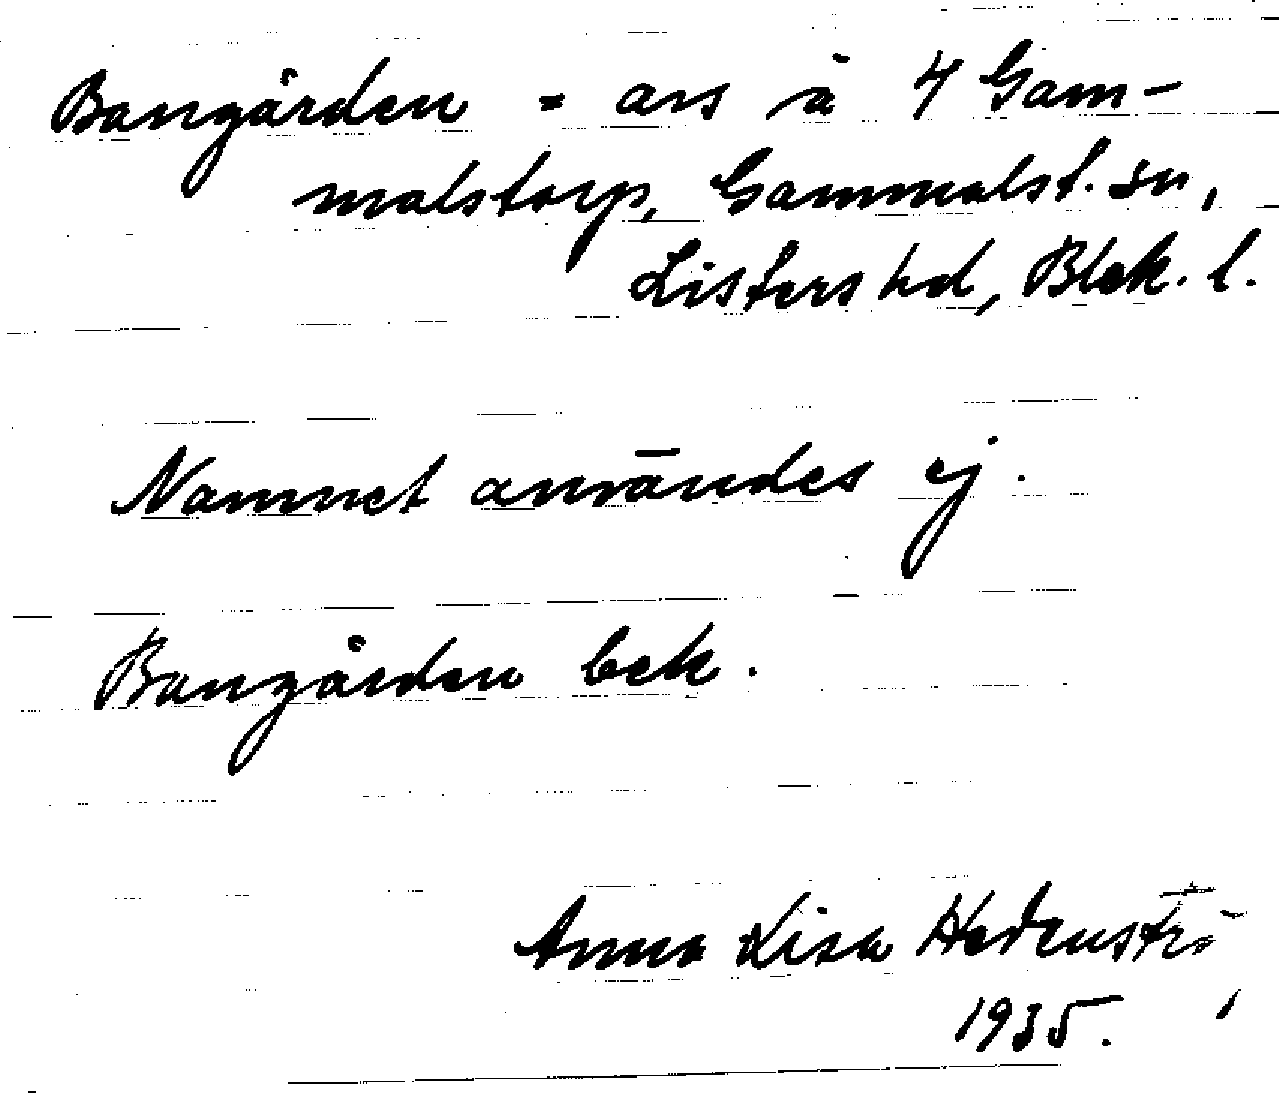 Bangården = avs å 4 Gam-
malstorp, Gammalst. sn,
Listers hd, Blek. l.
Namnet användes ej.
Bangården bek.
Anna Lisa Hedenströ
1935.